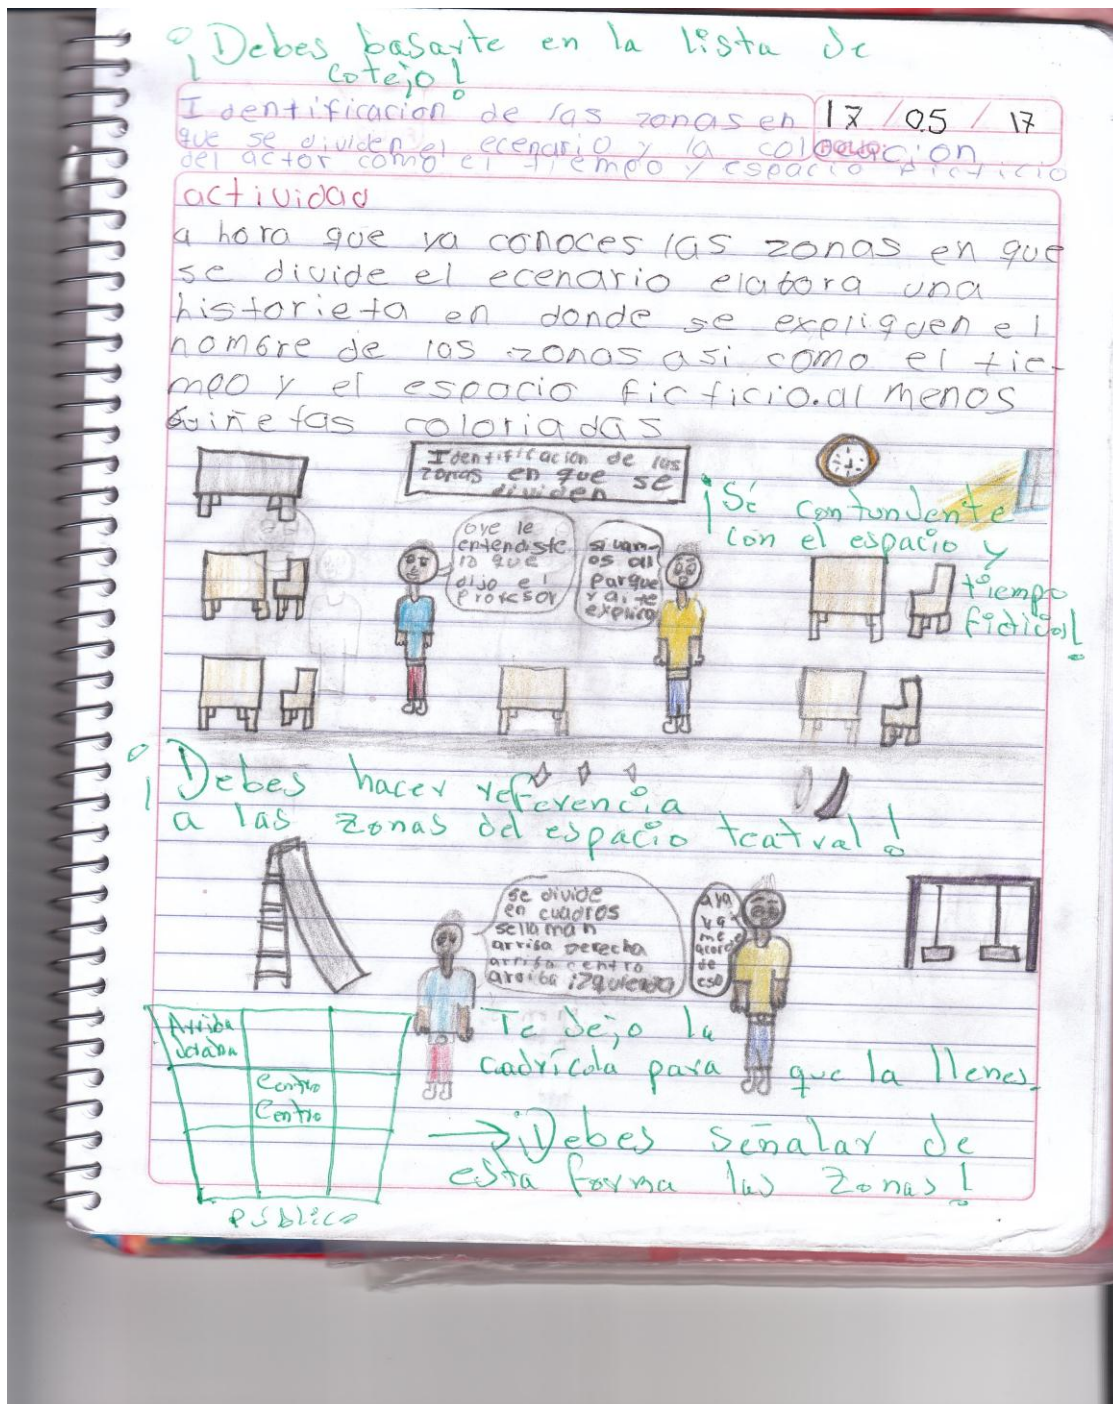 ¡Debes basarte en la lista de
cotejo!
Identificacion de las zonas en
17 / 05 / 17
que se dividen el ecenario y la colocacion
del actor como el tiempo y espacio ficticio
actividad
a hora que ya conoces las zonas en que
se divide el ecenario elabora una
historieta en donde se expliquen el
nombre de las zonas asi como el tie-
mpo y el espacio ficticio. al menos
6 viñetas coloriadas
Identificacion de las
zonas en que se
dividen
¡Sé contundente
con el espacio y
tiempo
ficticios!
oye le
entendiste
lo que
dijo el
profesor
si vam-
os al
parque
y ai te
explico
¡Debes hacer referencia
a las zonas del espacio teatral!
se divide
en cuadros
sellaman
arriba derecha
arriba centro
arriba izquierda
aya
ya
me
acorde
de
eso
Arriba
derecha
Centro
Centro
Público
Te dejo la
cadrícola para que la llenes.
→ ¡Debes señalar de
esta forma las zonas!